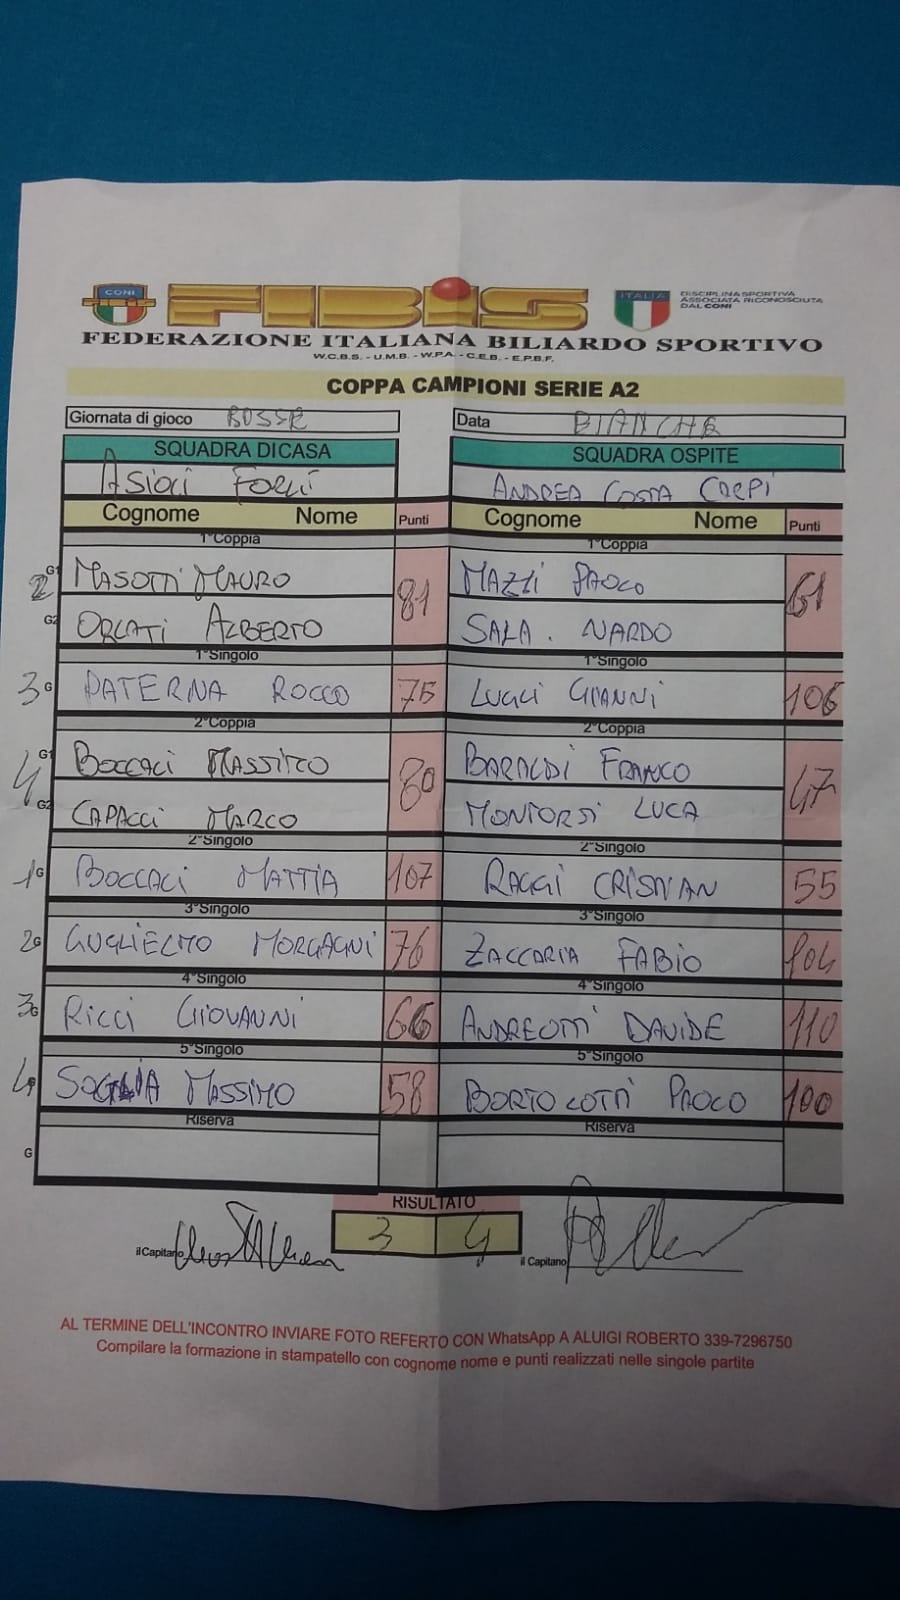 CONI
FIBIS
ITALIA
DISCIPLINA SPORTIVA
ASSOCIATA RICONOSCIUTA
DAL CONI
FEDERAZIONE ITALIANA BILIARDO SPORTIVO
W.C.B.S. - U.M.B. - W.P.A. - C.E.B. - E.P.B.F.
COPPA CAMPIONI SERIE A2
Giornata di gioco ROSSE
Data BIANCHE
SQUADRA DI CASA
SQUADRA OSPITE
ASIOLI FORLÍ
ANDREA COSTA CARPI
Cognome Nome Punti
Cognome Nome Punti
1°Coppia
1°Coppia
2 G1 MASOTTI MAURO 81
MAZLI PAOLO 61
G2 ORLATI ALBERTO
SALA. NARDO
1°Singolo
1°Singolo
3 G PATERNA ROCCO 75
LUGLI GIANNI 106
2°Coppia
2°Coppia
4 G1 BOCCACI MASSIMO 80
BARALDI FRANCO 47
G2 CAPACCI MARCO
MONTORSI LUCA
2°Singolo
2°Singolo
1 G BOCCACI MATTIA 107
RAGGI CRISTIAN 55
3°Singolo
3°Singolo
2 G GUGLIELMO MORGAGNI 76
ZACCARIA FABIO 104
4°Singolo
4°Singolo
3 G RICCI GIOVANNI 66
ANDREOTTI DAVIDE 110
5°Singolo
5°Singolo
4 SOGLIA MASSIMO 58
BORTOLOTTI PAOLO 100
Riserva
Riserva
G
RISULTATO
3 4
il Capitano
il Capitano
AL TERMINE DELL'INCONTRO INVIARE FOTO REFERTO CON WhatsApp A ALUIGI ROBERTO 339-7296750
Compilare la formazione in stampatello con cognome nome e punti realizzati nelle singole partite